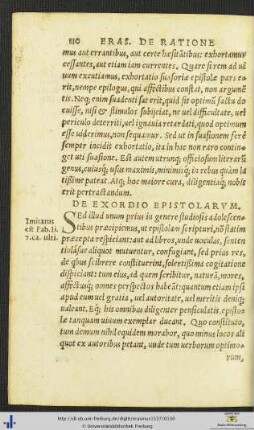 110 ERAS. DE RATIONE
mus aut errantibus, aut certe hæsitãtibus: exhortamur
cessantes, aut etiam iam currentes. Quare si rem ad ui
uum excutiamus, exhortatio suasoriæ epistolæ pars
rit, nempe epilogus, qui affectibus constat, non argumẽ
tis. Neq; enim suadenti sat erit, quid sit optimũ factu do
cuisse, nisi & stimulos subijciat, ne uel difficultate, uel
periculo deterriti, uel ignauia retardati, quod optimum
esse uiderimus, non sequamur. Sed ut in suasionem ferè
semper incidit exhortatio, ita in hac non raro contin-
get uti suasione. Est autem utrunq; officiosum literarũ
genus, cuiusq; usus maximis, minimisq; in rebus quàm la
tissime pateat. Atq; hoc maiore cura, diligentiaq; nobis
erit pertractandum.
DE EXORDIO EPISTOLARVM.
Imitatus
est Fab. li.
7. ca. ulti.
Sed illud unum prius in genere studiosis adolescen-
tibus præcipimus, ut epistolam scripturi, nõ statim
præcepta respiciant: aut ad libros, unde uoculas, senten
tiolasue aliquot mutuentur, confugiant, sed prius res,
de qbus scribere constituerint, solertissima cogitatione
dispiciant: tum eius, ad quem scribitur, naturã, mores,
affectusq; omnes perspectos habeãt: quantum etiam ipsi
apud eum uel gratia, uel autoritate, uel meritis deniq;
ualeant. Eq; his omnibus diligenter pensiculatis, epistolæ
tanquam uiuum exemplar ducant. Quo constituto,
tum demum nihil equidem morabor, quo minus locos ali
quot ex autoribus petant, unde tum uerborum optimo-
rum,
http://dl.ub.uni-freiburg.de/diglit/erasmus1537/0100
© Universitätsbibliothek Freiburg